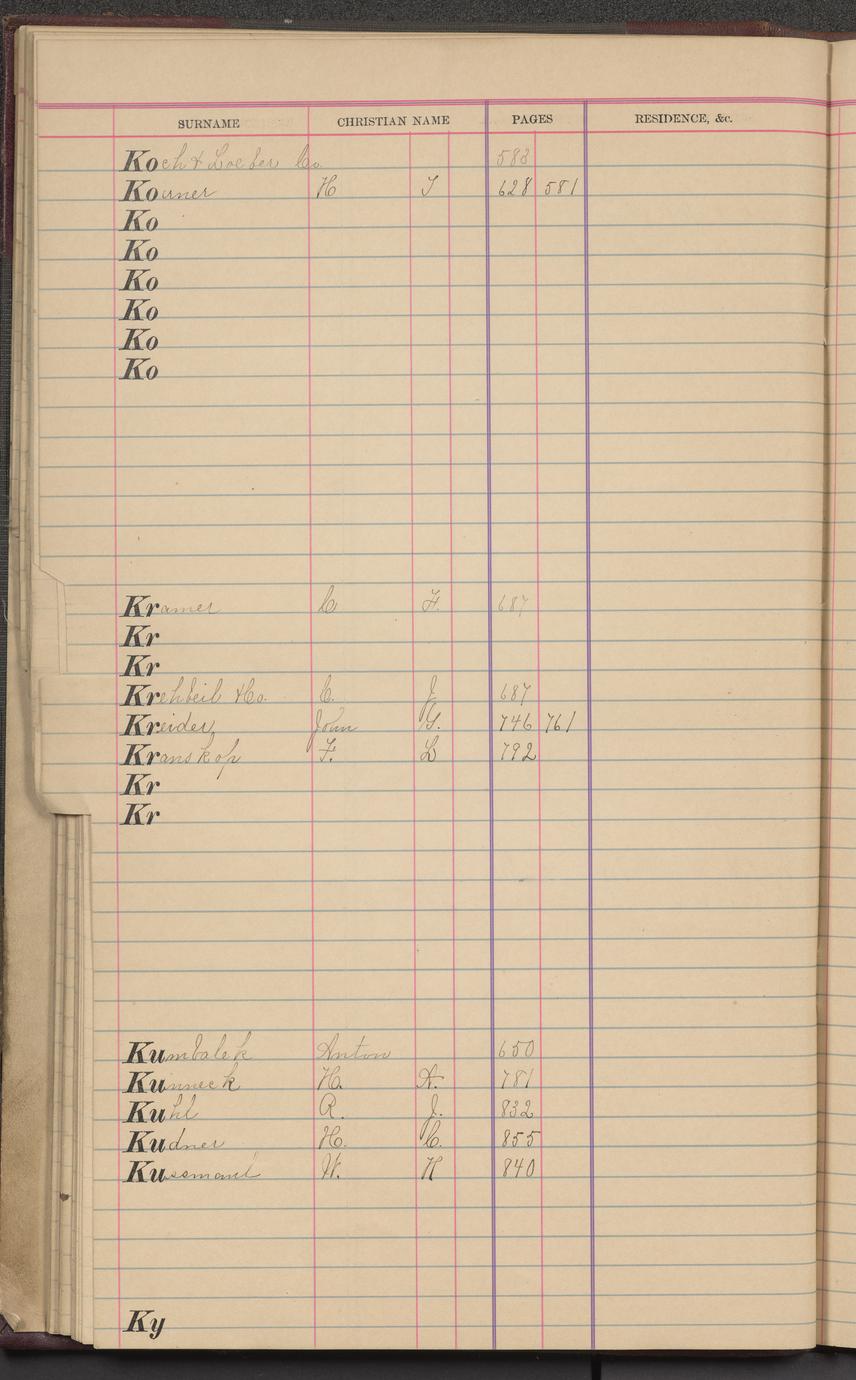 SURNAME CHRISTIAN NAME PAGES RESIDENCE, &c.
Koch & Loeber Co. 583
Koerner H T 628 581
Ko
Ko
Ko
Ko
Ko
Ko
Kramer C F. 687
Kr
Kr
Krehbeil & Co. C. J 687
Kreider John G. 746 761
Kranskop F. L 792
Kr
Kr
Kumbalek Anton 650
Kunneck H. A. 781
Kuhl R. J. 832
Kudner H. C. 855
Kussmaul W. H 840
Ky